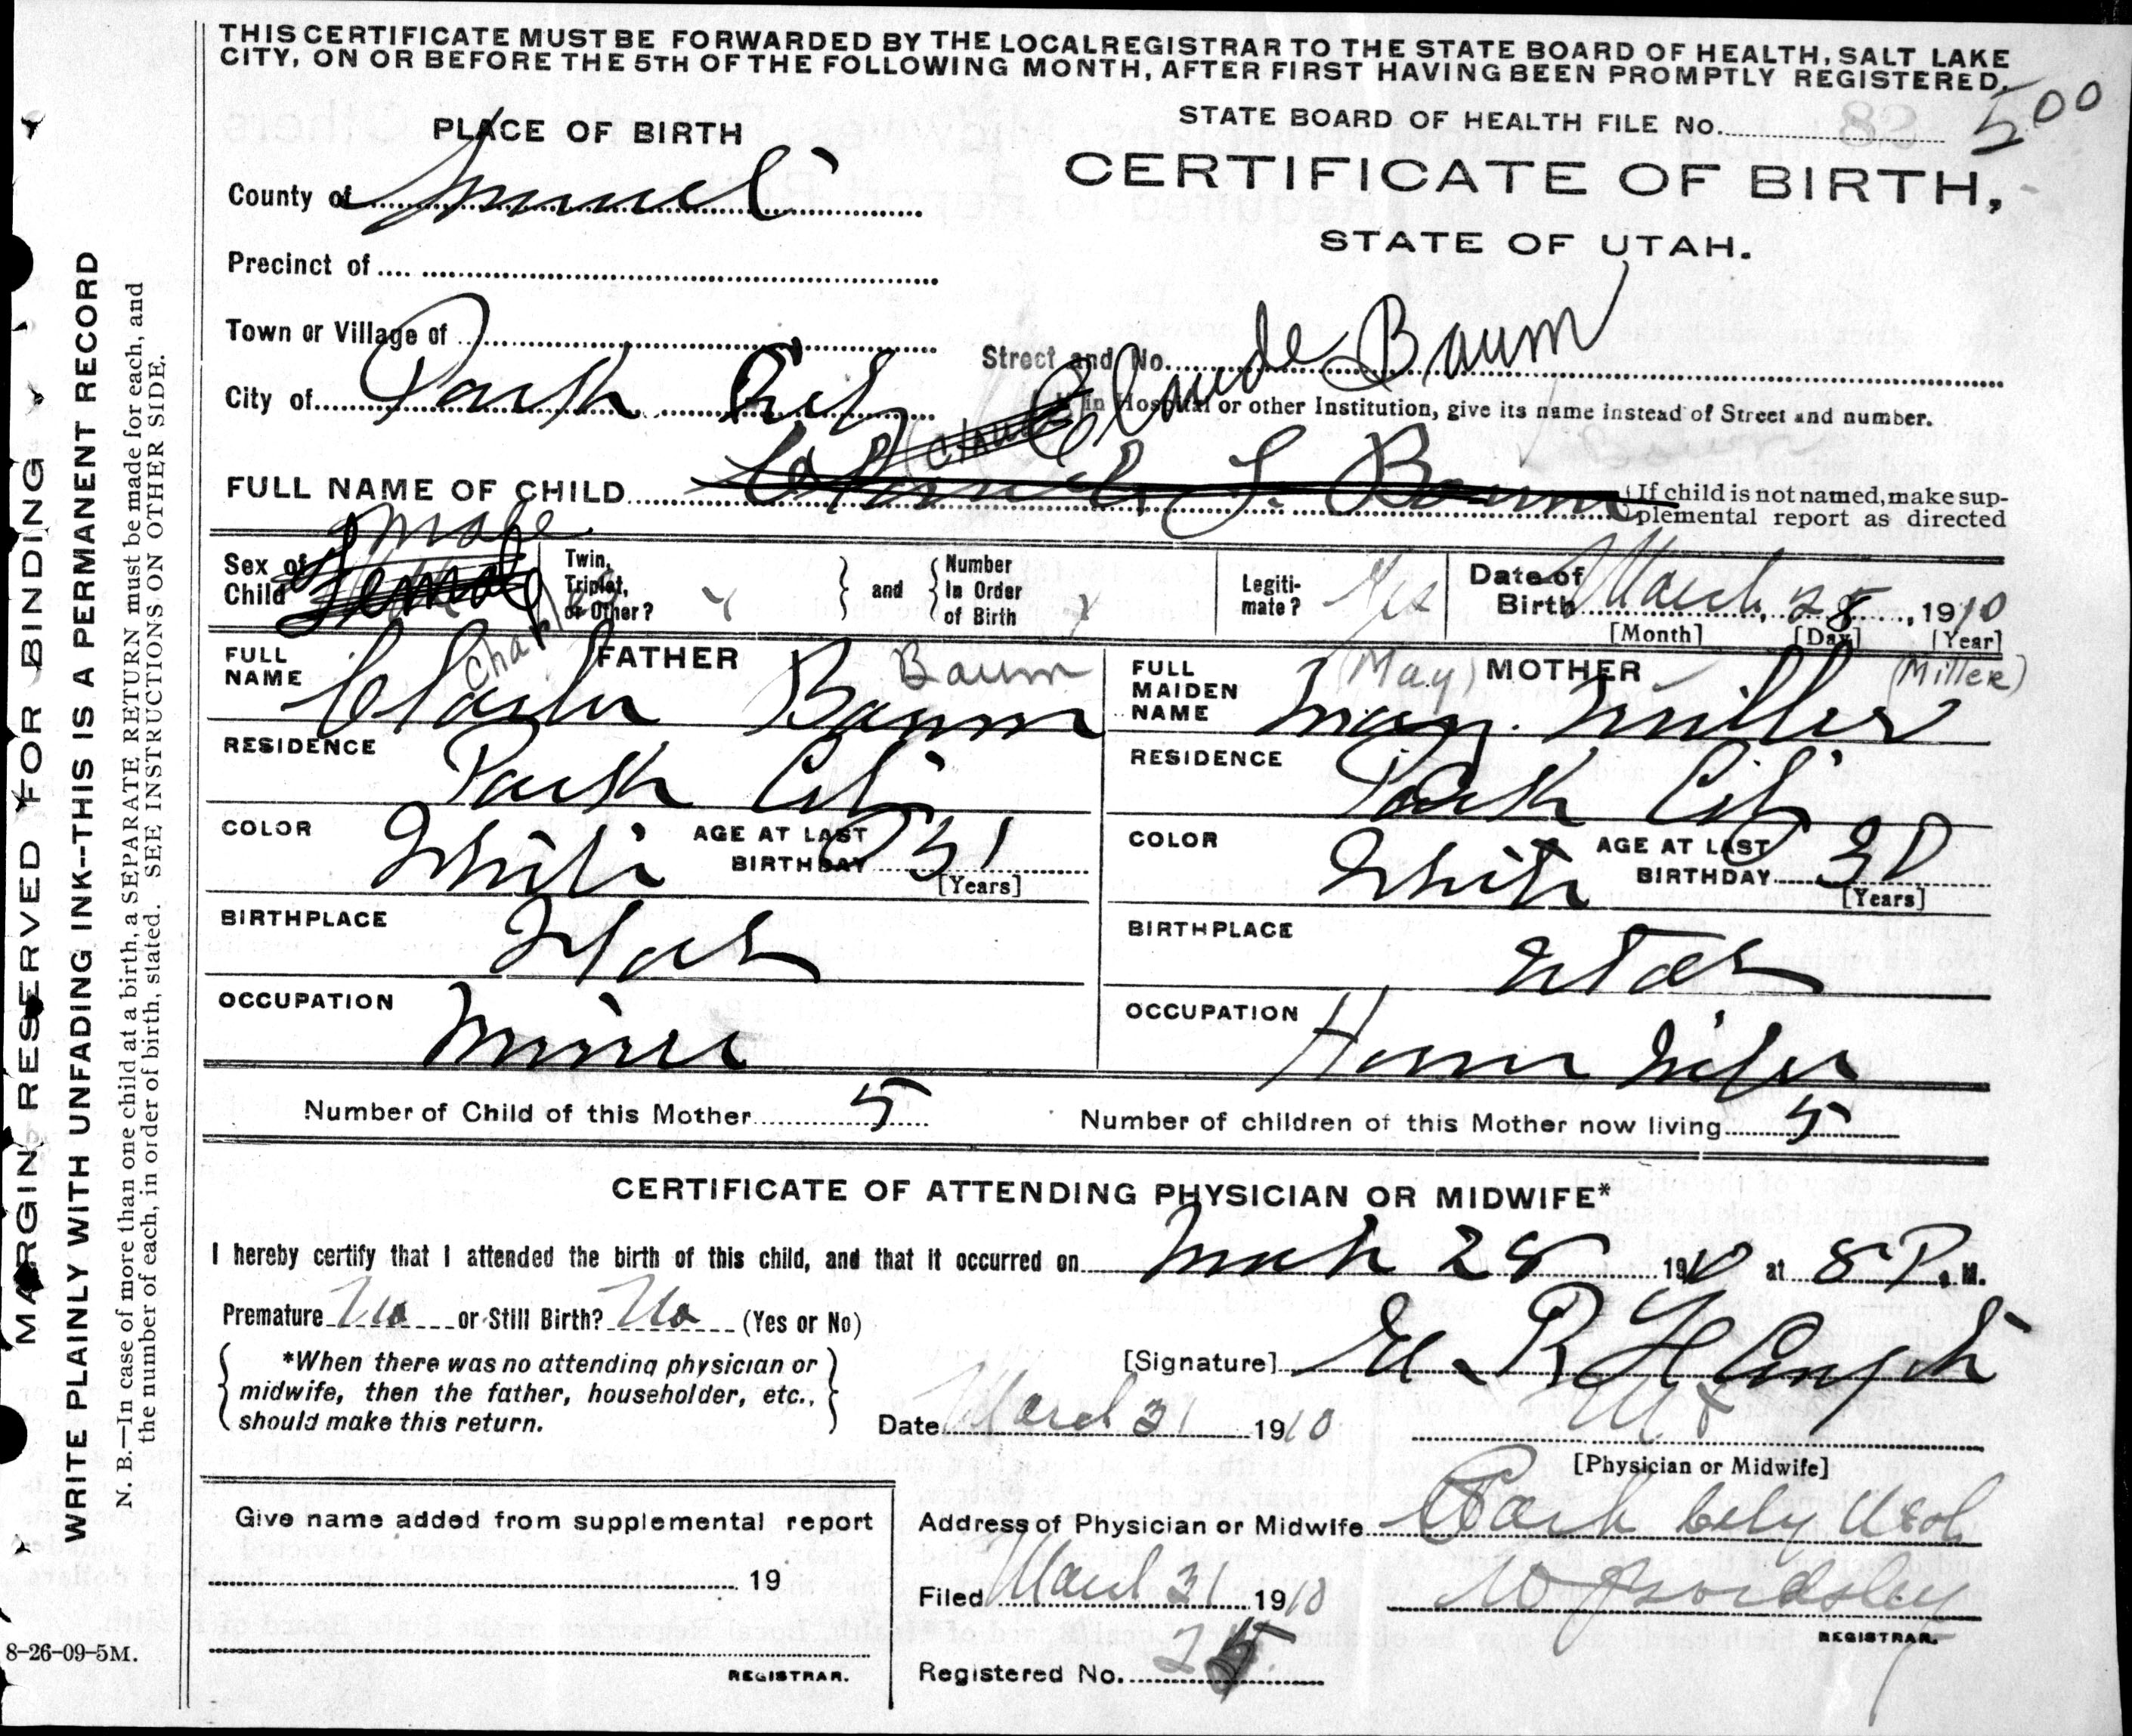 THIS CERTIFICATE MUST BE FORWARDED BY THE LOCAL REGISTRAR TO THE STATE BOARD OF HEALTH, SALT LAKE
CITY, ON OR BEFORE THE 5TH OF THE FOLLOWING MONTH, AFTER FIRST HAVING BEEN PROMPTLY REGISTERED.
PLACE OF BIRTH
STATE BOARD OF HEALTH FILE No. 500
CERTIFICATE OF BIRTH,
STATE OF UTAH.
County of Summit
Precinct of
Town or Village of
Street and No.
Claude Baum
City of Park City
If in Hospital or other Institution, give its name instead of Street and number.
FULL NAME OF CHILD L. Baum
If child is not named, make sup-
plemental report as directed
Male
Sex of Child Female
Twin, Triplet, or Other?
and
Number In Order of Birth
Legiti-mate? Yes
Date of Birth March 28, 1910
[Month] [Day] [Year]
FATHER
FULL NAME Charles Baum
Charles Baum
RESIDENCE Park City
COLOR White
AGE AT LAST BIRTHDAY 31
[Years]
BIRTHPLACE Utah
OCCUPATION Miner
MOTHER
(May) (Miller)
FULL MAIDEN NAME May Miller
RESIDENCE Park City
COLOR White
AGE AT LAST BIRTHDAY 30
[Years]
BIRTHPLACE Utah
OCCUPATION House Wife
Number of Child of this Mother 5
Number of children of this Mother now living 5
CERTIFICATE OF ATTENDING PHYSICIAN OR MIDWIFE*
I hereby certify that I attended the birth of this child, and that it occurred on March 28 1910 at 8 P. M.
Premature No or Still Birth? No (Yes or No)
*When there was no attending physician or
midwife, then the father, householder, etc.,
should make this return.
[Signature] E. R.
Date March 31 1910
[Physician or Midwife]
Give name added from supplemental report
19
REGISTRAR.
Address of Physician or Midwife Park City Utah
Filed March 31 1910
REGISTRAR.
Registered No.
8-26-09-5M.
MARGIN RESERVED FOR BINDING
WRITE PLAINLY WITH UNFADING INK--THIS IS A PERMANENT RECORD
N. B.—In case of more than one child at a birth, a SEPARATE RETURN must be made for each, and
the number of each, in order of birth, stated. SEE INSTRUCTIONS ON OTHER SIDE.